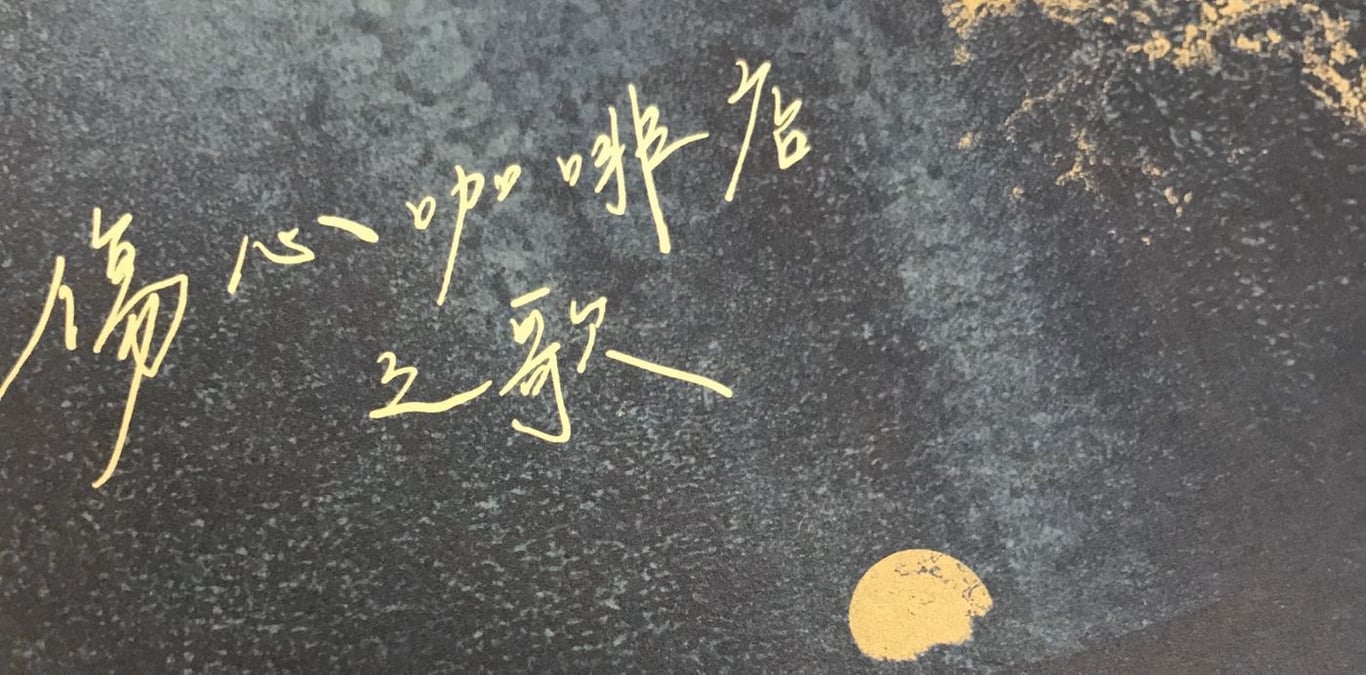 傷心咖啡店
之歌